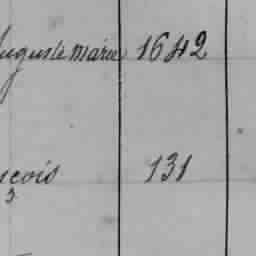 Auguste marie 1642
ncois 131
3